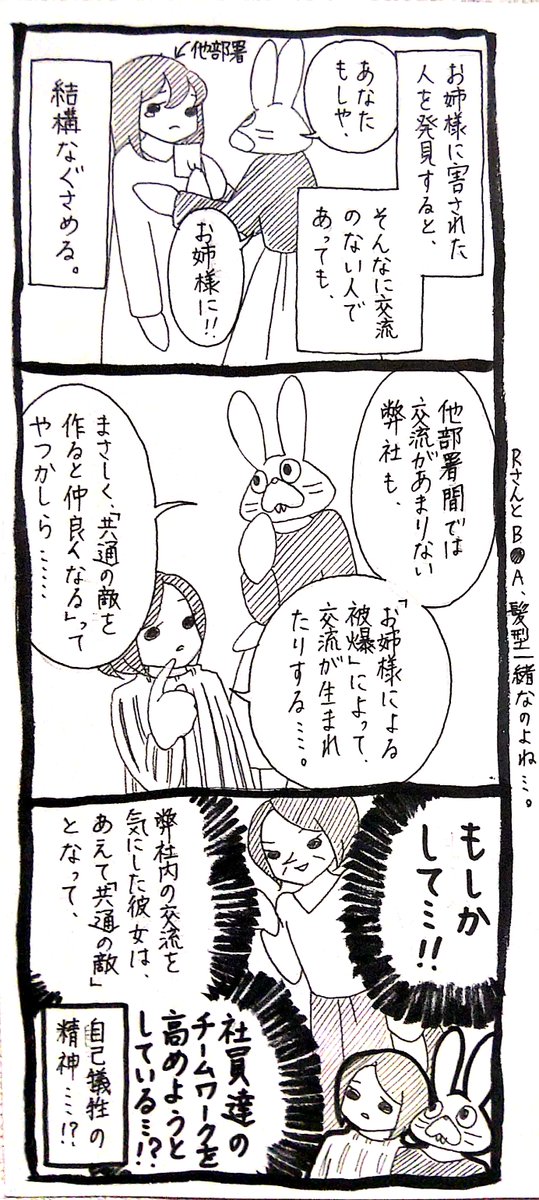 お姉様に害された
人を発見すると、
そんなに交流
のない人で
あっても、
あなた
もしや、
お姉様に!!
←他部署
結構なぐさめる。
他部署間では
交流があまりない
弊社も、
「お姉様による
被爆」によって、
交流が生まれ
たりする…。
まさしく、「共通の敵を
作ると仲良くなる」って
やつかしら……
RさんとB●A、髪型一緒なのよね…。
もしか
して…!!
弊社内の交流を
気にした彼女は、
あえて「共通の敵」
となって、
社員達の
チームワークを
高めようと
している…!?
自己犠牲の
精神…!?